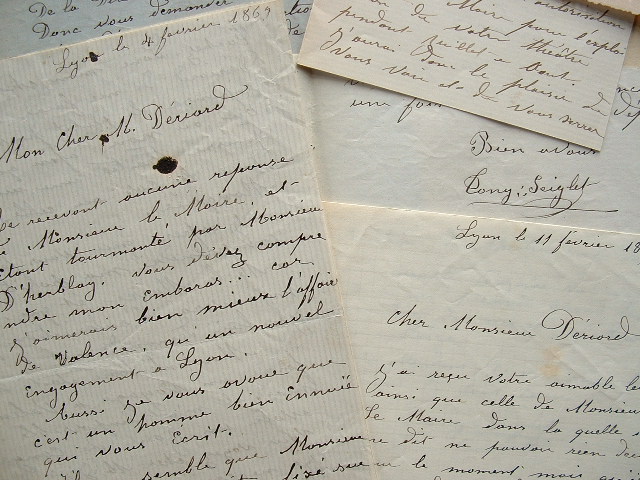 De la
Donc vous demander
Lyon le 4 février 1869
Mon Cher M. Dériard
Ne recevant aucune reponse
de Monsieur le Maire, et
étant tourmenté par Monsieur
D'herblay. Vous devez compre
ndre mon embaras... car
j'aimerais bien mieux l'affaire
de Valence, qu'un nouvel
engagement a Lyon.
Aussi je vous avoue que
c'est un homme bien ennuïé
qui vous Ecrit.
semble que Monsieur
fixé sur
Maire pour l'exploi
de votre théâtre
pendant Juillet e Aout.
J'aurai donc le plaisir de
vous voir et de vous serrer
une fois
Bien a vous
Tony: Seiglet
Lyon le 11 février 18
Cher Monsieur Dériard
J'ai reçu votre aimable le
ainsi que celle de Monsieur
Le Maire dans la quelle
dit ne pouvoir rien de
le moment mais